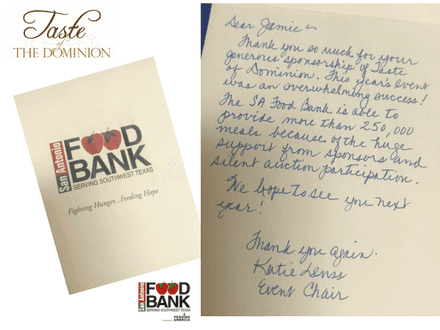 Taste
of
THE DOMINION
San Antonio
FOOD
BANK
SERVING SOUTHWEST TEXAS
Fighting Hunger...Feeding Hope
San Antonio
FOOD
BANK
FEEDING
AMERICA
Dear Jamie ~
Thank you so much for your
generous sponsorship of Taste
of Dominion. This year's event
was an overwhelming success!
The SA Food Bank is able to
provide more than 250,000
meals because of the huge
support from sponsors and
silent auction participation.
We hope to see you next
year!
Thank you again.
Katie
Event Chair